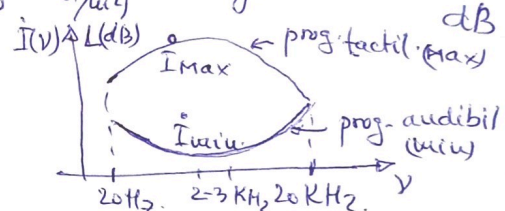 dB
İ(ν) L(dB)
prag tactil (Max)
İMax
prag audibil
İmin
(min)
20Hz 2-3 KHz 20 KHz
ν